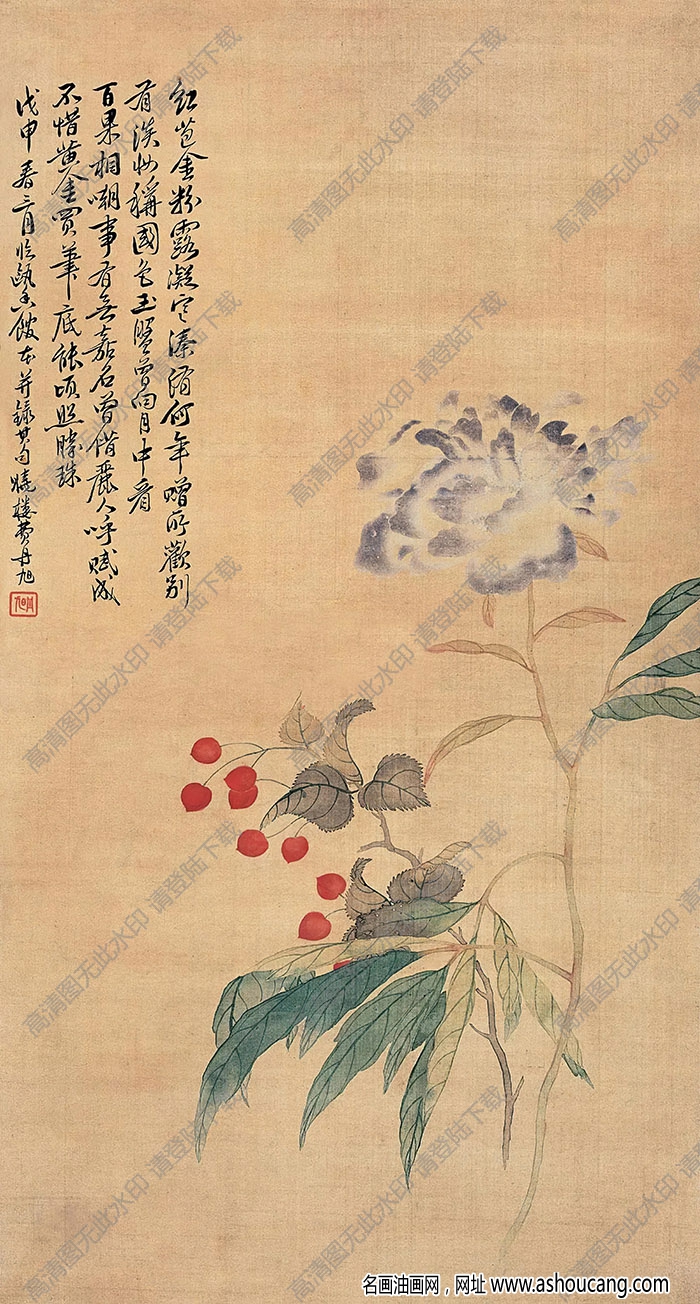 红苞金粉露凝寒溱洧何年赠所歡别
有淡妝稱國色玉盤曾向月中看
百果相嘲事有無嘉名曾借麗人呼賦成
不惜黄金買筆底能頃照勝珠
戊申春三月临甌香館本并錄其句 曉樓費丹旭
高清图无此水印 请登陆下载
名画油画网，网址 www.ashoucang.com